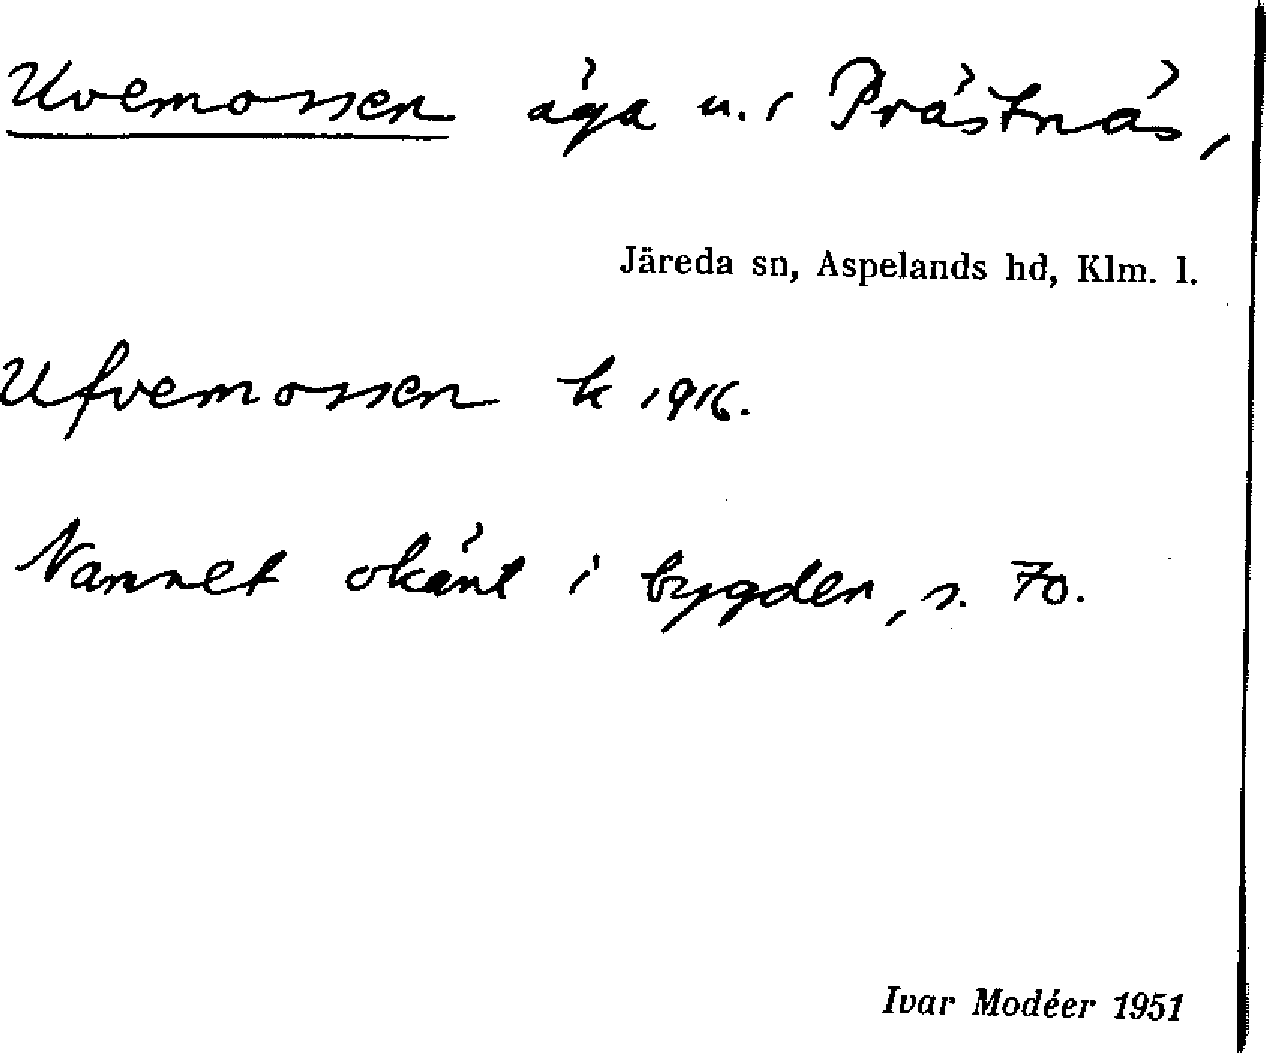 Uvemossen äga u. i Prästnäs,
Järeda sn, Aspelands hd, Klm. l.
Ufvemossen k 1916.
Namnet okänt i bygden, s. 70.
Ivar Modéer 1951